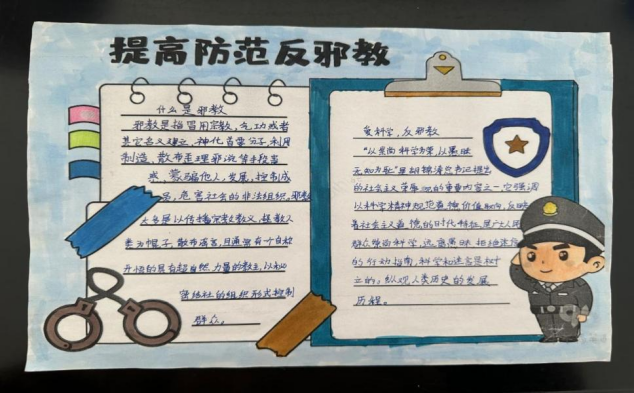 提高防范反邪教
什么是邪教
邪教是指冒用宗教、气功或者
其它名义建立、神化首要分子、利用
制造、散布歪理邪说等手段蛊
惑、蒙骗他人，发展、控制成
员，危害社会的非法组织，邪教
大多是以传播宗教教义、拯救人
类为幌子，散布谣言，且通常有一个自称
开悟的具有超自然力量的教主，以秘
密结社的组织形式控制
群众。
爱科学，反邪教
"以崇尚科学为荣，以愚昧
无知为耻"是胡锦涛总书记提出
的社会主义荣辱观的重要内容之一，它强调
以科学精神规范着
着社会主义道德的时代特征，是广大人民
群众崇尚科学，远离愚昧 拒绝迷信
的行动指南，科学和迷信是对
立的，纵观人类历史的发展
历程。